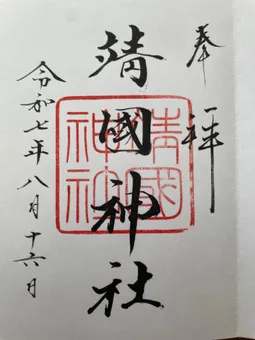 奉拝
靖國神社
靖國
神社
令和七年八月十六日